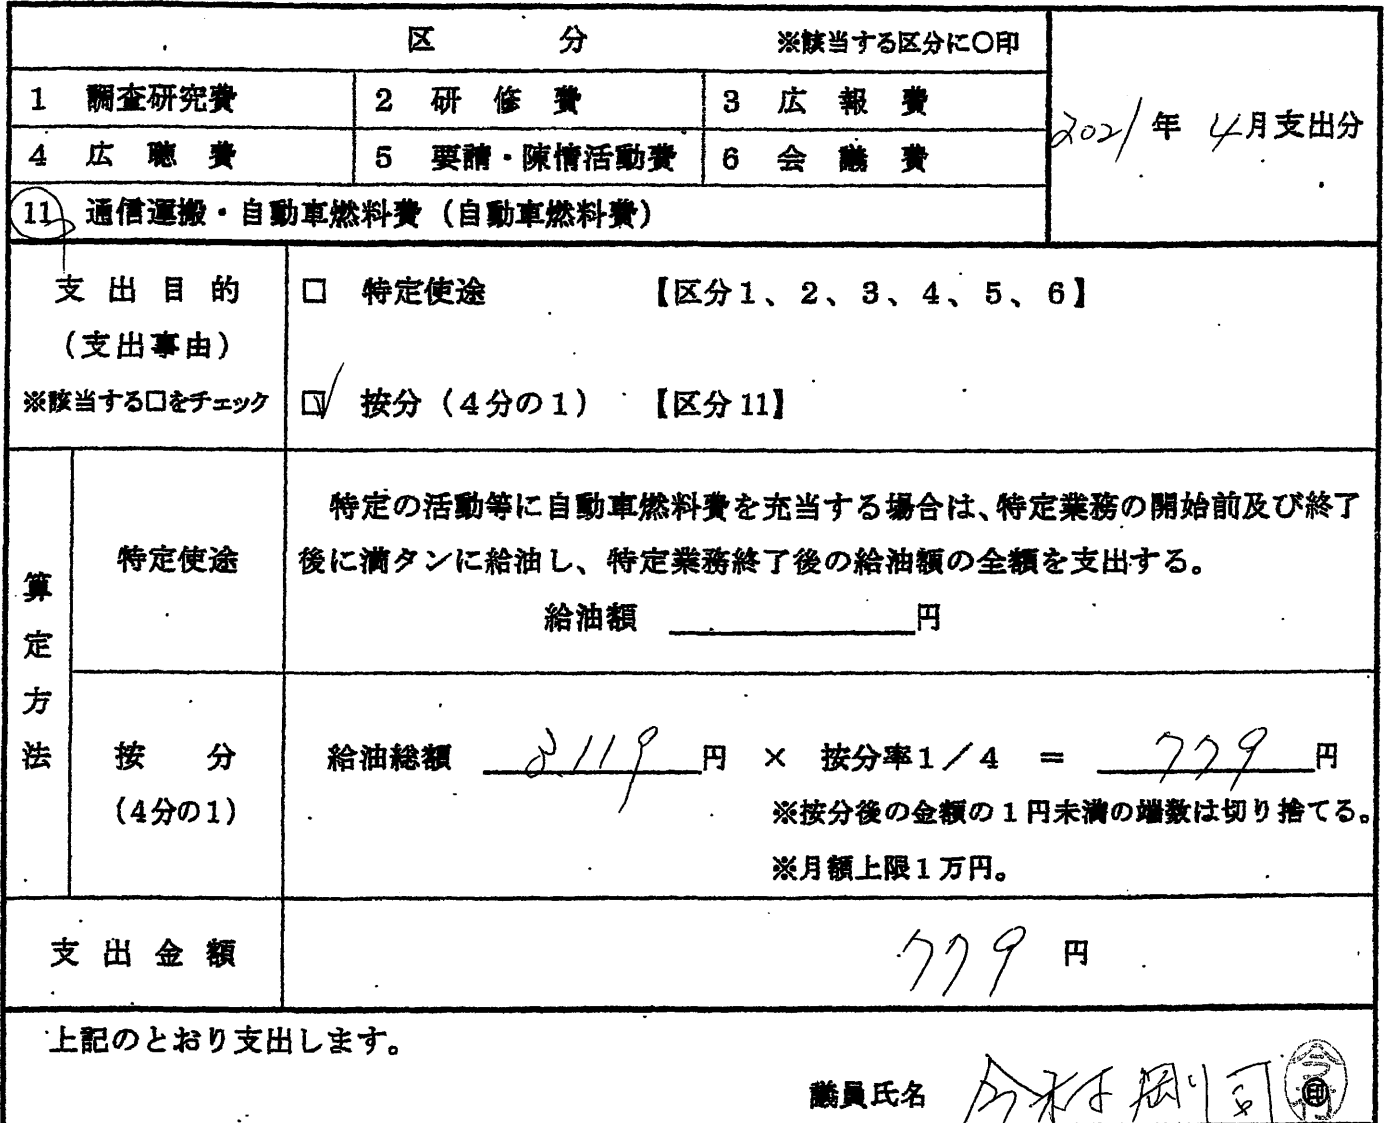 区　分　※該当する区分に〇印
1 調査研究費　2 研修費　3 広報費
2021年 4月支出分
4 広聴費　5 要請・陳情活動費　6 会議費
11 通信運搬・自動車燃料費（自動車燃料費）
支出目的
（支出事由）
※該当する□をチェック
□ 特定使途　【区分1、2、3、4、5、6】
☑ 按分（4分の1）　【区分11】
算定方法
特定使途
特定の活動等に自動車燃料費を充当する場合は、特定業務の開始前及び終了
後に満タンに給油し、特定業務終了後の給油額の全額を支出する。
給油額　円
按分
（4分の1）
給油総額 3,119 円 × 按分率1／4 ＝ 779 円
※按分後の金額の1円未満の端数は切り捨てる。
※月額上限1万円。
支出金額　779 円
上記のとおり支出します。
議員氏名 今村剛司 ㊞
今村